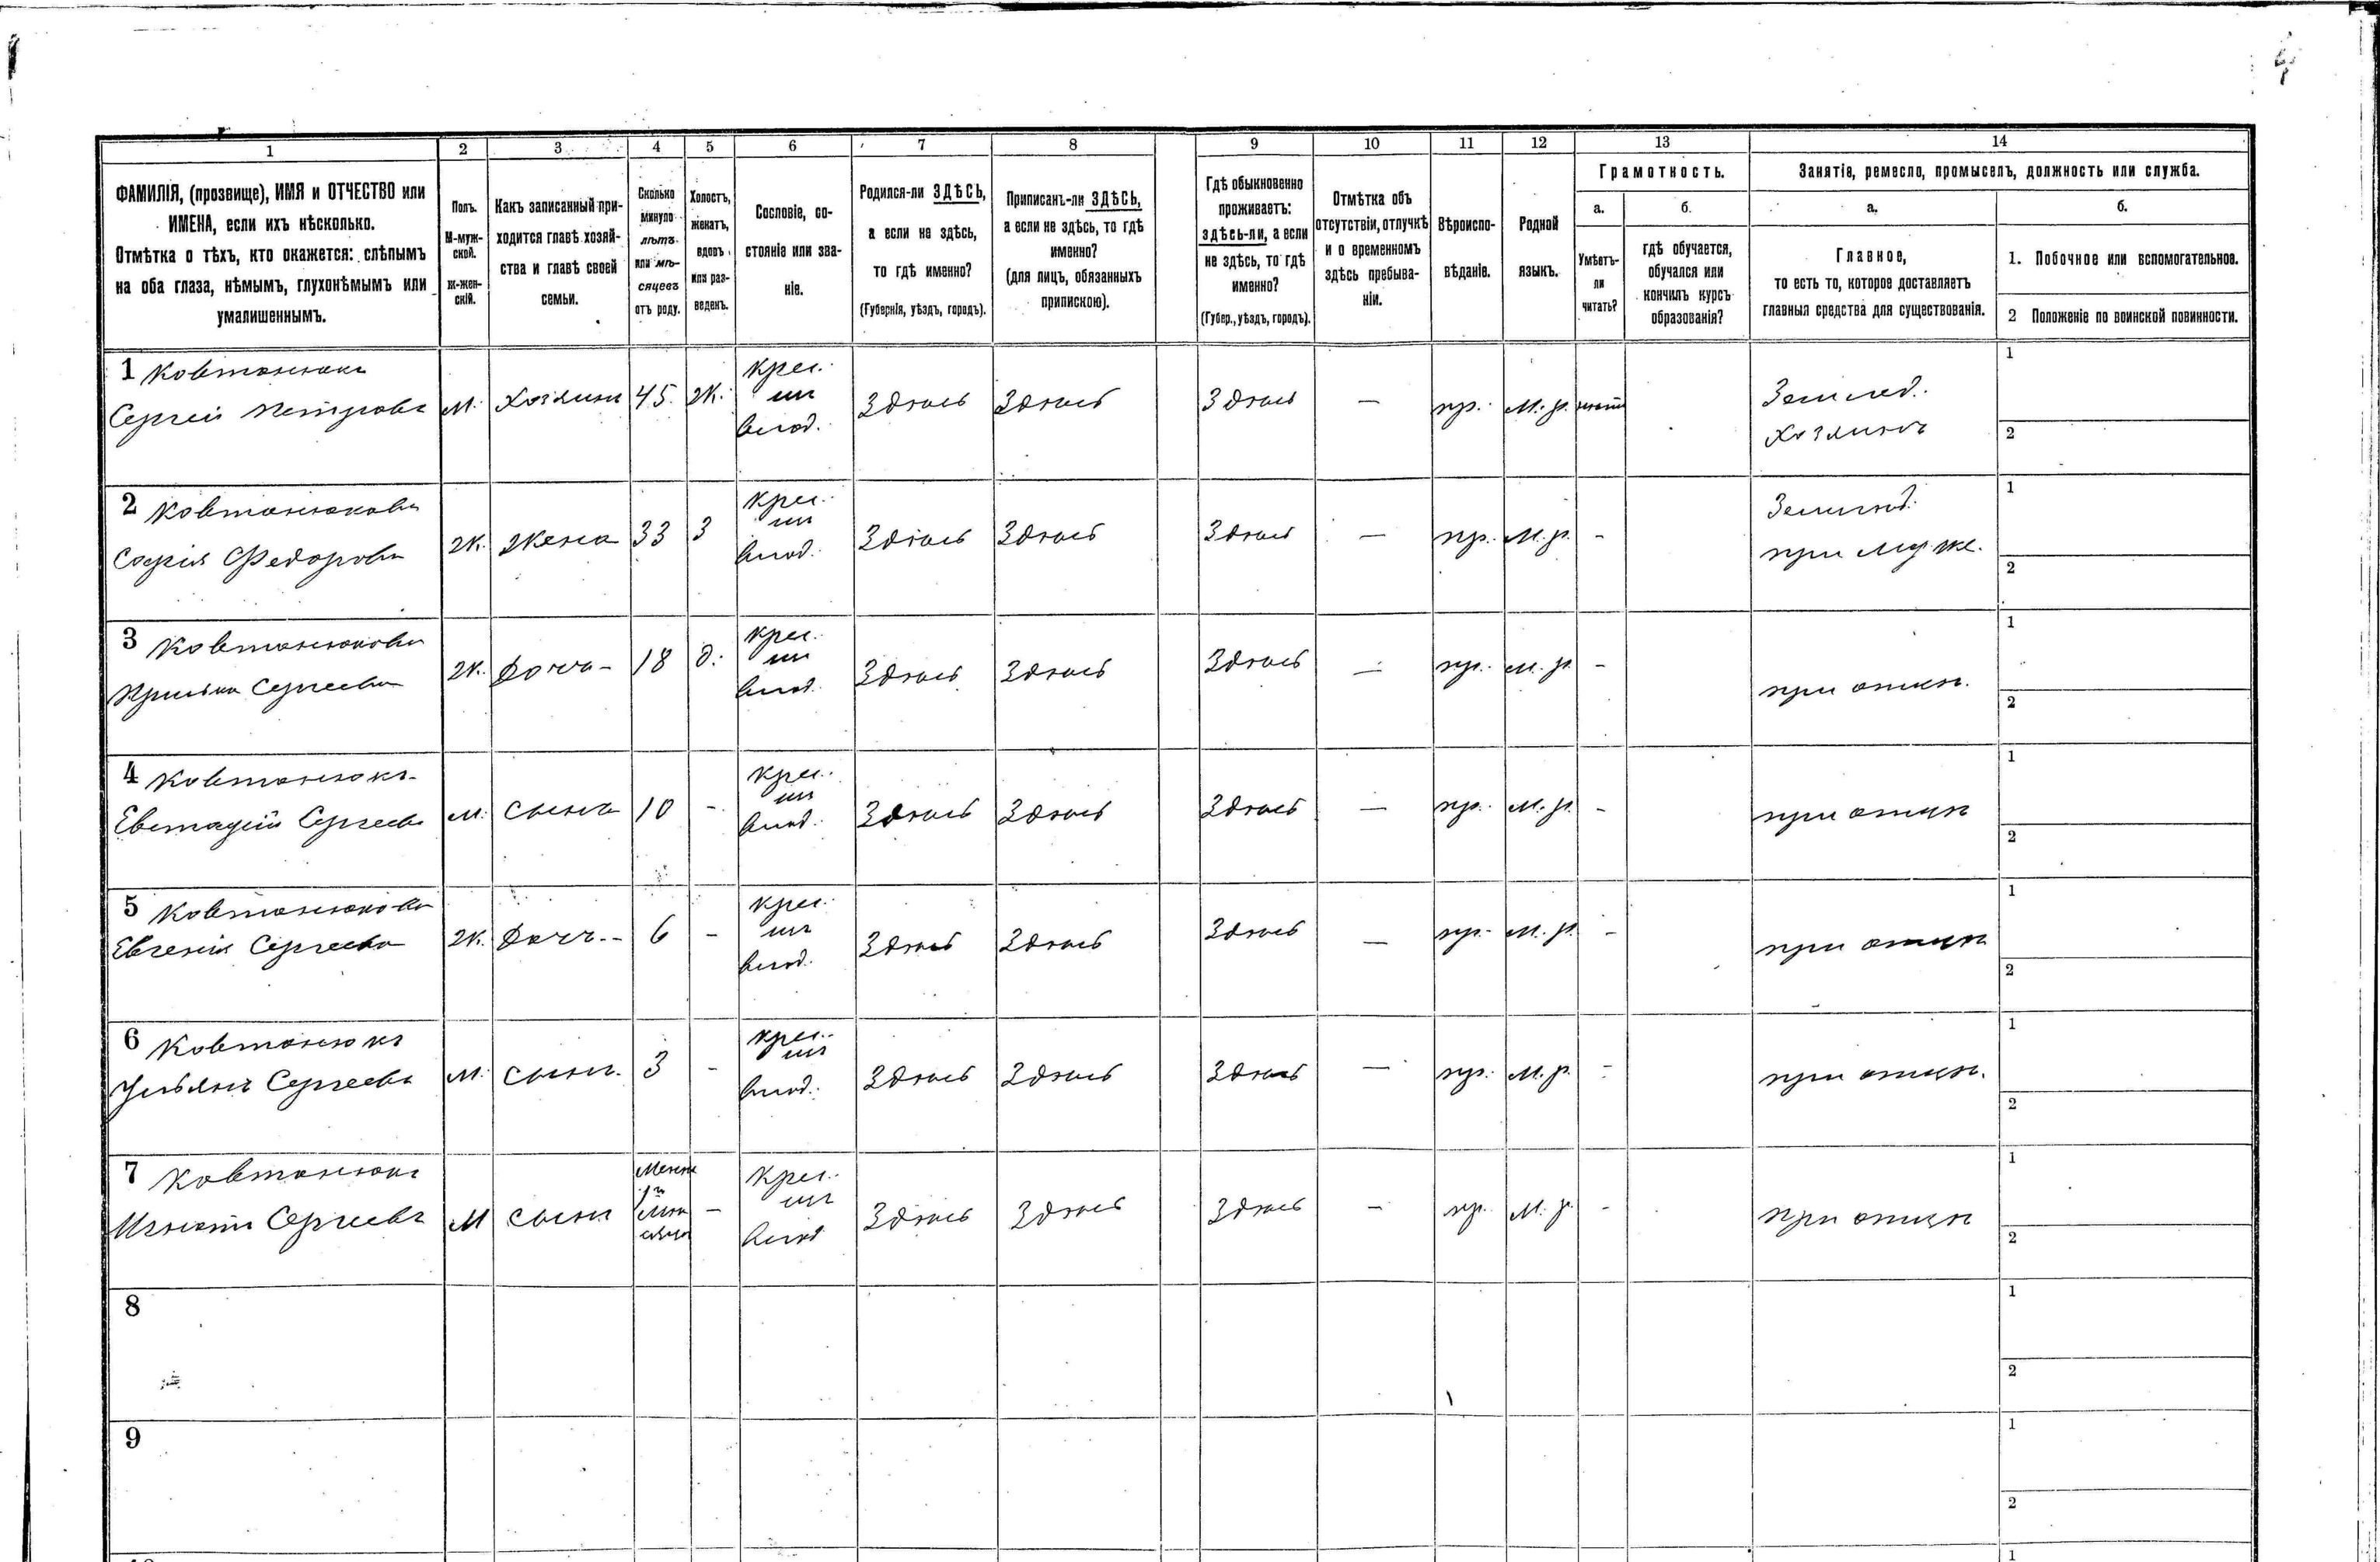 1 2 3 4 5 6 7 8 9 10 11 12 13 14
ФАМИЛІЯ, (прозвище), ИМЯ и ОТЧЕСТВО или
ИМЕНА, если ихъ нѣсколько.
Отмѣтка о тѣхъ, кто окажется: слѣпымъ
на оба глаза, нѣмымъ, глухонѣмымъ или
умалишеннымъ.
Полъ.
М-муж-
ской.
Ж-жен-
скій.
Какъ записанный при-
ходится главѣ хозяй-
ства и главѣ своей
семьи.
Сколько
минуло
лѣтъ
или мѣ-
сяцевъ
отъ роду.
Холостъ,
женатъ,
вдовъ
или раз-
веденъ.
Сословіе, со-
стояніе или зва-
ніе.
Родился-ли ЗДѢСЬ,
а если не здѣсь,
то гдѣ именно?
(Губернія, уѣздъ, городъ).
Приписанъ-ли ЗДѢСЬ,
а если не здѣсь, то гдѣ
именно?
(для лицъ, обязанныхъ
припискою).
Гдѣ обыкновенно
проживаетъ:
здѣсь-ли, а если
не здѣсь, то гдѣ
именно?
(Губер., уѣздъ, городъ).
Отмѣтка объ
отсутствіи, отлучкѣ
и о временномъ
здѣсь пребыва-
ніи.
Вѣроиспо-
вѣданіе.
Родной
языкъ.
Грамотность.
а.
Умѣетъ-
ли
читать?
б.
гдѣ обучается,
обучался или
кончилъ курсъ
образованія?
Занятіе, ремесло, промыселъ, должность или служба.
а.
Главное,
то есть то, которое доставляетъ
главныя средства для существованія.
б.
1. Побочное или вспомогательное.
2 Положеніе по воинской повинности.
1 Ковтонюкъ
Сергей Петровъ
м.
Хозяинъ
45.
ж.
крес.
из
влад.
Здѣсь
Здѣсь
Здѣсь
—
пр.
м. р.
нѣтъ
Землед.
Хозяинъ
1
2
2 Ковтонюкова
Софія Федорова
ж.
жена
33
З
крес.
из
влад.
Здѣсь
Здѣсь
Здѣсь
—
пр.
м. р.
-
Землед.
при муже.
1
2
3 Ковтонюкова
Сергеева
ж.
Дочь
18
д.
крес.
из
влад.
Здѣсь
Здѣсь
Здѣсь
—
пр.
м. р.
-
при отцѣ.
1
2
4 Ковтонюкъ
Сергеевъ
м.
сынъ
10
-
крес.
из
влад.
Здѣсь
Здѣсь
Здѣсь
—
пр.
м. р.
-
при отцѣ
1
2
5 Ковтонюкова
Евгенія Сергеева
ж.
Дочь
6
-
крес.
из
влад.
Здѣсь
Здѣсь
Здѣсь
—
пр.
м. р.
-
при отцѣ
1
2
6 Ковтонюкъ
Ульянъ Сергеевъ
м.
сынъ
3
-
крес.
из
влад.
Здѣсь
Здѣсь
Здѣсь
—
пр.
м. р.
-
при отцѣ.
1
2
7 Ковтонюкъ
Игнатій Сергеевъ
м
сынъ
Менѣе
1го
мѣ
сяца
-
крес.
из
влад
Здѣсь
Здѣсь
Здѣсь
—
пр.
м. р.
-
при отцѣ
1
2
8
1
2
9
1
2
1